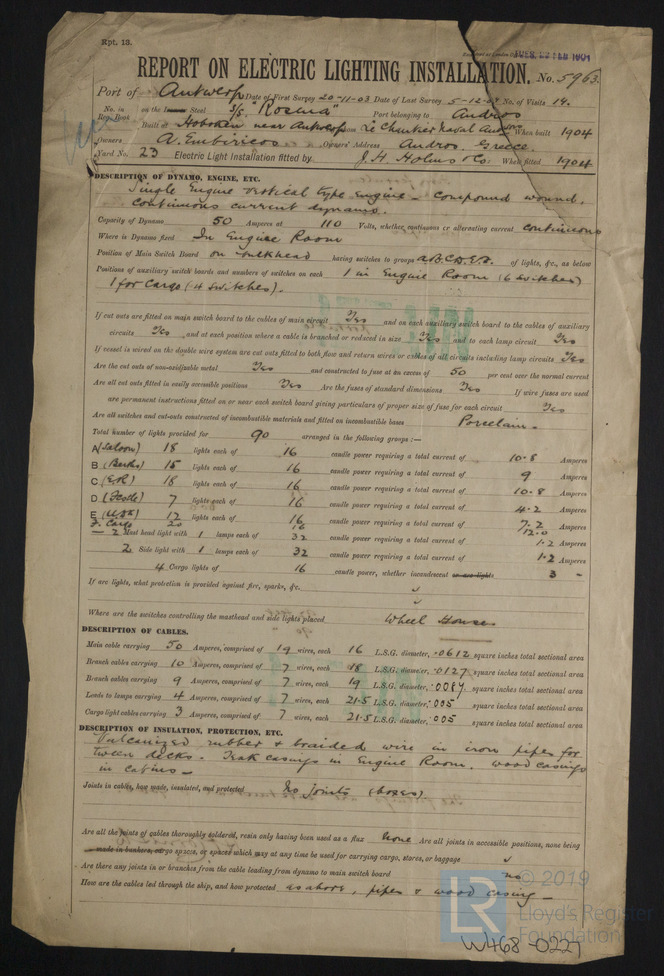 Rpt. 13.
REPORT ON ELECTRIC LIGHTING INSTALLATION. No. 5963.
Port of Antwerp Date of First Survey 20-11-03 Date of Last Survey 5-12-03 No. of Visits 14.
No. in Reg. Book on the Iron or Steel S/S "Rosina" Port belonging to Andros
Built at Hoboken near Antwerp When built 1904
Owners A. Embiricos Owners' Address Andros, Greece.
Yard No. 23 Electric Light Installation fitted by J. H. Holmes & Co. When fitted 1904
DESCRIPTION OF DYNAMO, ENGINE, ETC.
Single Engine vertical type engine - compound wound,
continuous current dynamo.
Capacity of Dynamo 50 Amperes at 110 Volts, whether continuous or alternating current continuous
Where is Dynamo fixed In Engine Room
Position of Main Switch Board on bulkhead having switches to groups A B C D E F. of lights, &c., as below
Positions of auxiliary switch boards and numbers of switches on each 1 in Engine Room (6 switches)
1 for Cargo (4 switches).
If cut outs are fitted on main switch board to the cables of main circuit Yes and on each auxiliary switch board to the cables of auxiliary
circuits Yes and at each position where a cable is branched or reduced in size Yes and to each lamp circuit Yes
If vessel is wired on the double wire system are cut outs fitted to both flow and return wires or cables of all circuits including lamp circuits Yes
Are the cut outs of non-oxidizable metal Yes and constructed to fuse at an excess of 50 per cent over the normal current
Are all cut outs fitted in easily accessible positions Yes Are the fuses of standard dimensions Yes If wire fuses are used
are permanent instructions fitted on or near each switch board giving particulars of proper size of fuse for each circuit Yes
Are all switches and cut-outs constructed of incombustible materials and fitted on incombustible bases Porcelain.
Total number of lights provided for 90 arranged in the following groups :—
A (Saloon) 18 lights each of 16 candle power requiring a total current of 10.8 Amperes
B (Berths) 15 lights each of 16 candle power requiring a total current of 9 Amperes
C (E.R.) 18 lights each of 16 candle power requiring a total current of 10.8 Amperes
D 7 lights each of 16 candle power requiring a total current of 4.2 Amperes
E 12 lights each of 16 candle power requiring a total current of 7.2 Amperes
F. Cargo 20 16 12.0
2 Mast head light with 1 lamps each of 32 candle power requiring a total current of 1.2 Amperes
2 Side light with 1 lamps each of 32 candle power requiring a total current of 1.2 Amperes
4 Cargo lights of 16 candle power, whether incandescent or arc lights 3 -
If arc lights, what protection is provided against fire, sparks, &c.
Where are the switches controlling the masthead and side lights placed Wheel House
DESCRIPTION OF CABLES.
Main cable carrying 50 Amperes, comprised of 19 wires, each 16 L.S.G. diameter, .0612 square inches total sectional area
Branch cables carrying 10 Amperes, comprised of 7 wires, each 18 L.S.G. diameter, .0127 square inches total sectional area
Branch cables carrying 9 Amperes, comprised of 7 wires, each 19 L.S.G. diameter, .0089 square inches total sectional area
Leads to lamps carrying 4 Amperes, comprised of 7 wires, each 21.5 L.S.G. diameter, .005 square inches total sectional area
Cargo light cables carrying 3 Amperes, comprised of 7 wires, each 21.5 L.S.G. diameter, .005 square inches total sectional area
DESCRIPTION OF INSULATION, PROTECTION, ETC.
Vulcanized rubber & braided wire in iron pipes for
tween decks. Teak casings in Engine Room. wood casings
in cabins -
Joints in cables, how made, insulated, and protected No joints (boxes)
Are all the joints of cables thoroughly soldered, resin only having been used as a flux None Are all joints in accessible positions, none being
made in bunkers, cargo spaces, or spaces which may at any time be used for carrying cargo, stores, or baggage
Are there any joints in or branches from the cable leading from dynamo to main switch board no
How are the cables led through the ship, and how protected as above, pipes & wood casing -
© 2019
LR
Lloyd's Register
Foundation
W468-0227